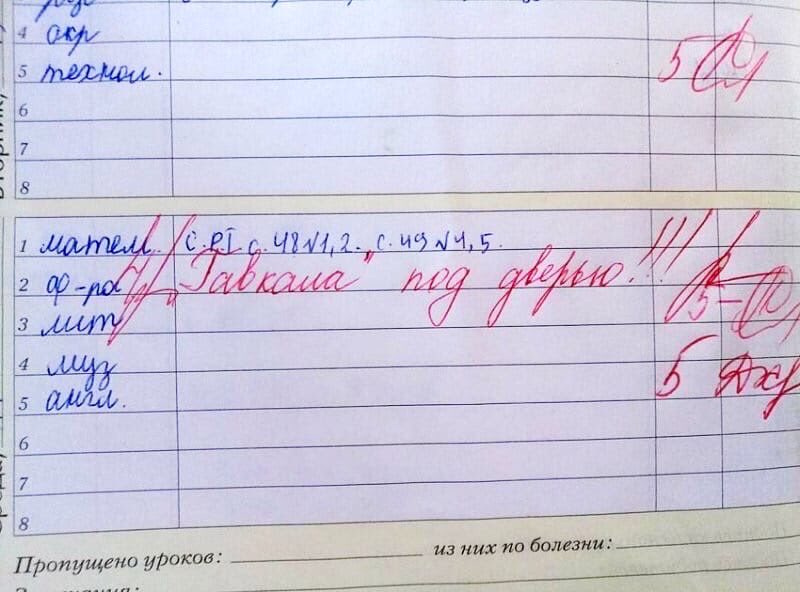 4 окр
5 технол. 5
6
7
8
1 матем. С. РТ с. 48 №1, 2. с. 49 №4, 5.
2 ф-ра "Гавкала" под дверью!!! 5-
3 лит
4 муз 5
5 англ.
6
7
8
Пропущено уроков: из них по болезни: